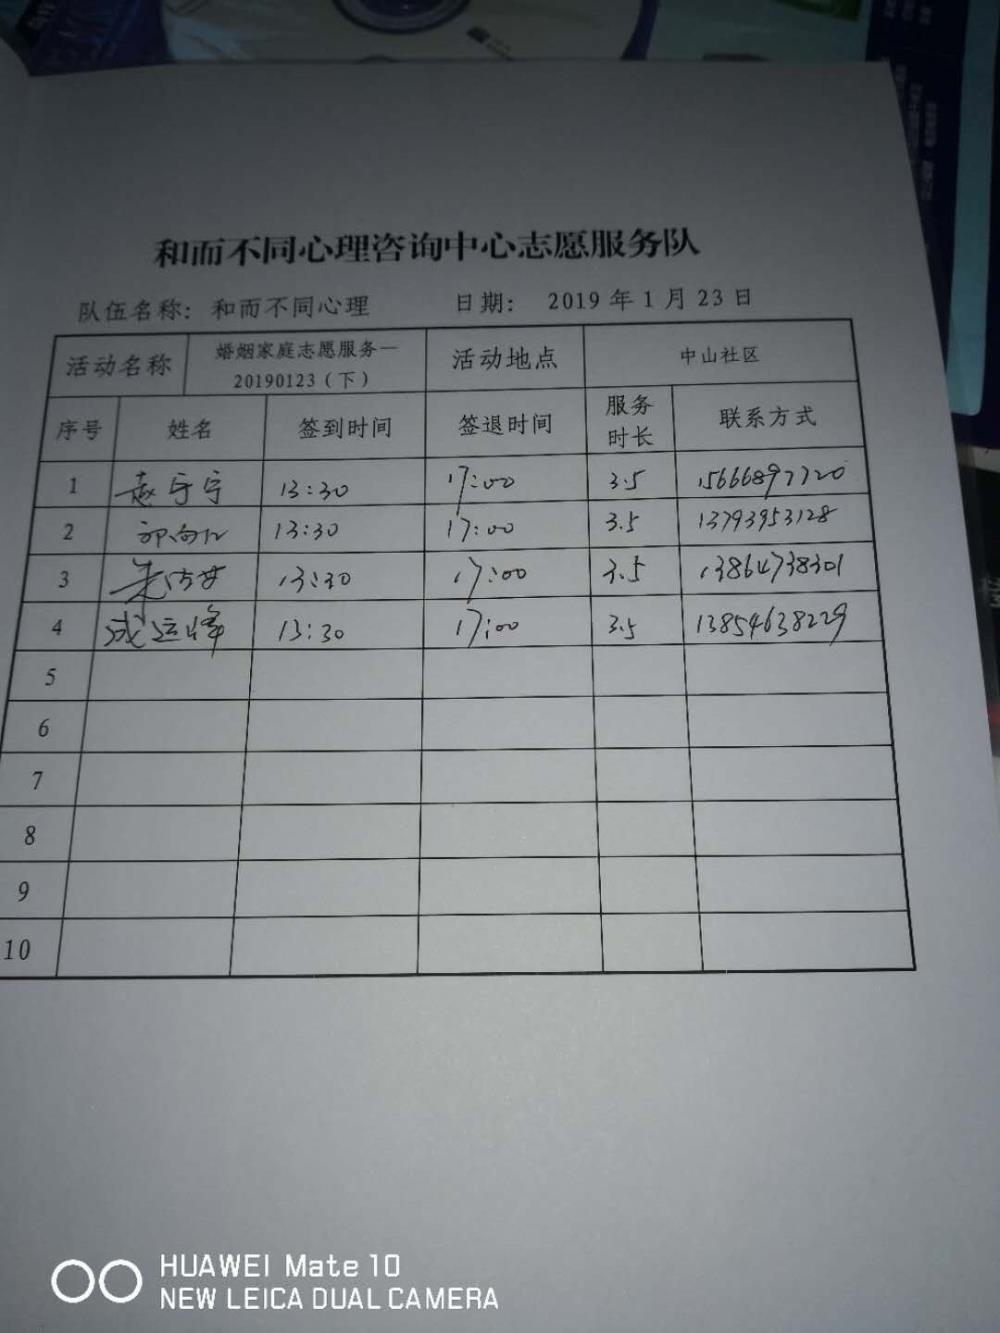 和而不同心理咨询中心志愿服务队
队伍名称: 和而不同心理 日期: 2019年1月23日
活动名称 婚姻家庭志愿服务一 活动地点 中山社区
20190123（下）
序号 姓名 签到时间 签退时间 服务 联系方式
时长
1 赵守宁 13:30 17:00 3.5 15666897720
2 13:30 17:00 3.5 13793953128
3 13:30 17:00 3.5 13864738301
4 成运峰 13:30 17:00 3.5 13854638229
5
6
7
8
9
10
HUAWEI Mate 10
NEW LEICA DUAL CAMERA